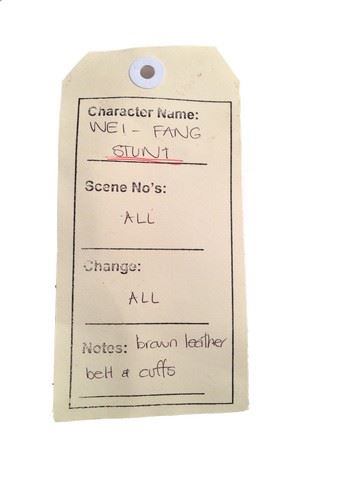 Character Name:
WEI - FANG
STUNT
Scene No's:
ALL
Change:
ALL
Notes: brown leather
belt & cuffs